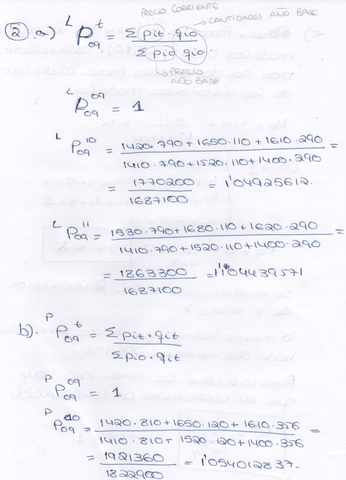 PRECIO CORRIENTE
CANTIDADES AÑO BASE
② a) ᴸP₀₉ᵗ = Σ pit · qio / Σ pio qio
PRECIO AÑO BASE
ᴸP₀₉⁰⁹ = 1
ᴸP₀₉¹⁰ = 1420·790+1650·110+1610·290 / 1410·790+1520·110+1400·290 =
= 1770200 / 1687100 = 1'04925612.
ᴸP₀₉¹¹ = 1930·790+1680·110+1620·290 / 1410·790+1520·110+1400·290 =
= 1863300 / 1687100 = 1'104439571
b). ᴾP₀₉ᵗ = Σ pit · qit / Σ pio · qit
ᴾP₀₉⁰⁹ = 1
ᴾP₀₉¹⁰ = 1420·810+1650·120+1610·356 / 1410·810+1520·120+1400·356 =
= 1921360 / 1822900 = 1'054012837.